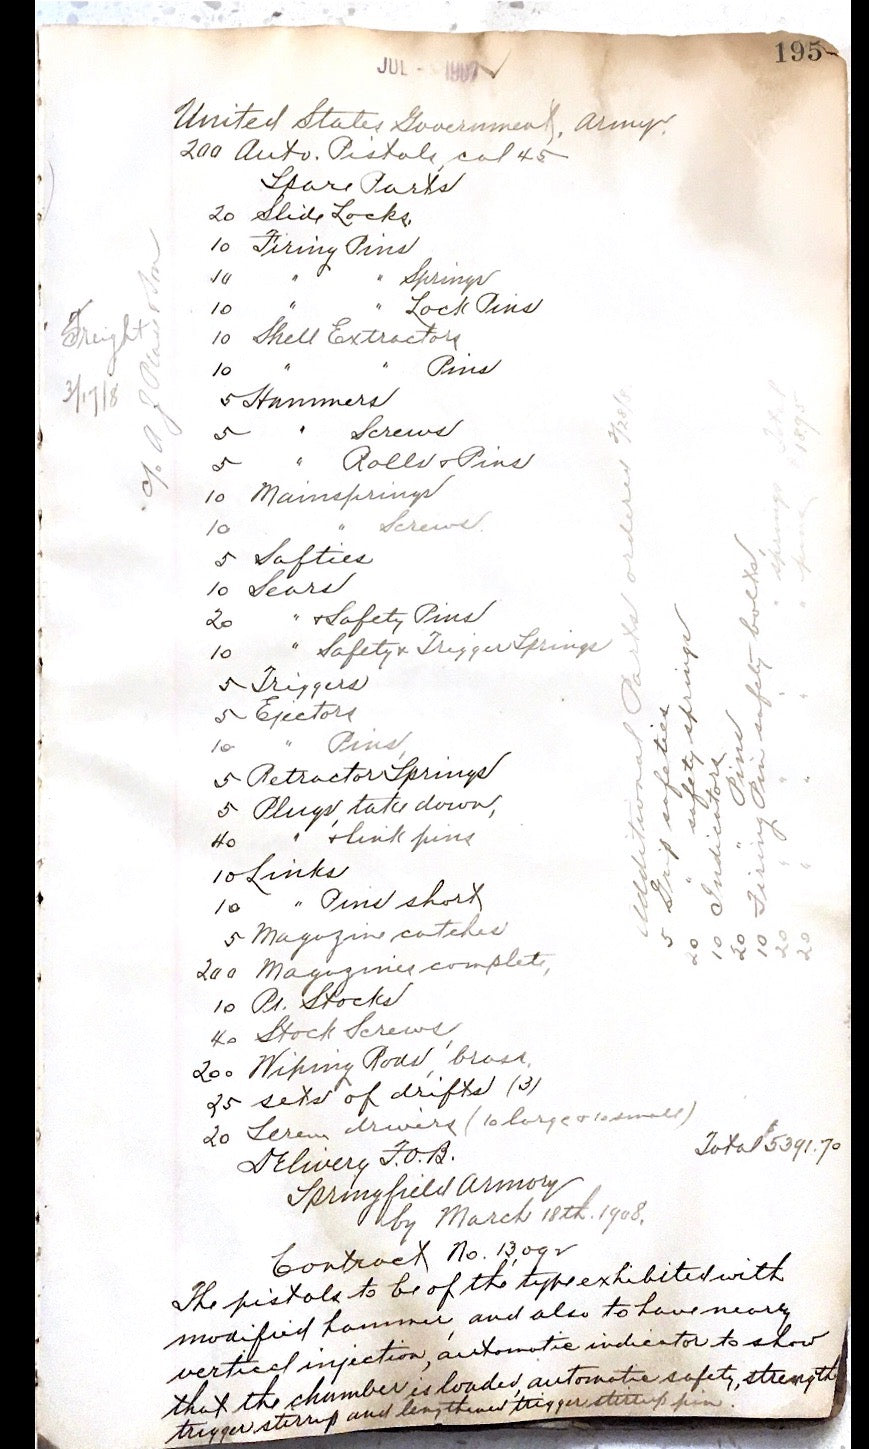 195
JUL 1907
United States Government, Army.
200 Auto. Pistols, cal 45
Spare Parts
20 Slide Locks,
10 Firing Pins
10 " " Springs
10 " " Lock Pins
10 Shell Extractors
10 " " Pins
5 Hammers
5 " Screws
5 " Rolls & Pins
10 Mainsprings
10 " Screws
5 Safties
10 Sears
20 " & Safety Pins
10 " Safety & Trigger Springs
5 Triggers
5 Ejectors
10 " Pins,
5 Retractor Springs
5 Plugs, take down,
40 " & link pins
10 Links
10 " Pins short
5 Magazine catches
200 Magazines complete,
10 Pr. Stocks
40 Stock Screws,
200 Wiping Rods, brass,
25 sets of drifts (3)
20 Screw drivers (10 large & 10 small)
Total $5391.70
Delivery F.O.B.
Springfield Armory
by March 18th. 1908.
Contract No.
The pistols to be of the type exhibited with
modified hammer, and also to have nearly
vertical injection, automatic indicator to show
that the chamber is loaded, automatic safety, strength
trigger stirrup and lengthened trigger stirrup pin.
Freight
3/17/8
Additional Parts ordered
5 Grip safeties
20 " safety springs
10 Indicators
20 " Pins
10 Firing Pin safety bolts,
20 " " " " springs
20 " " " " pins